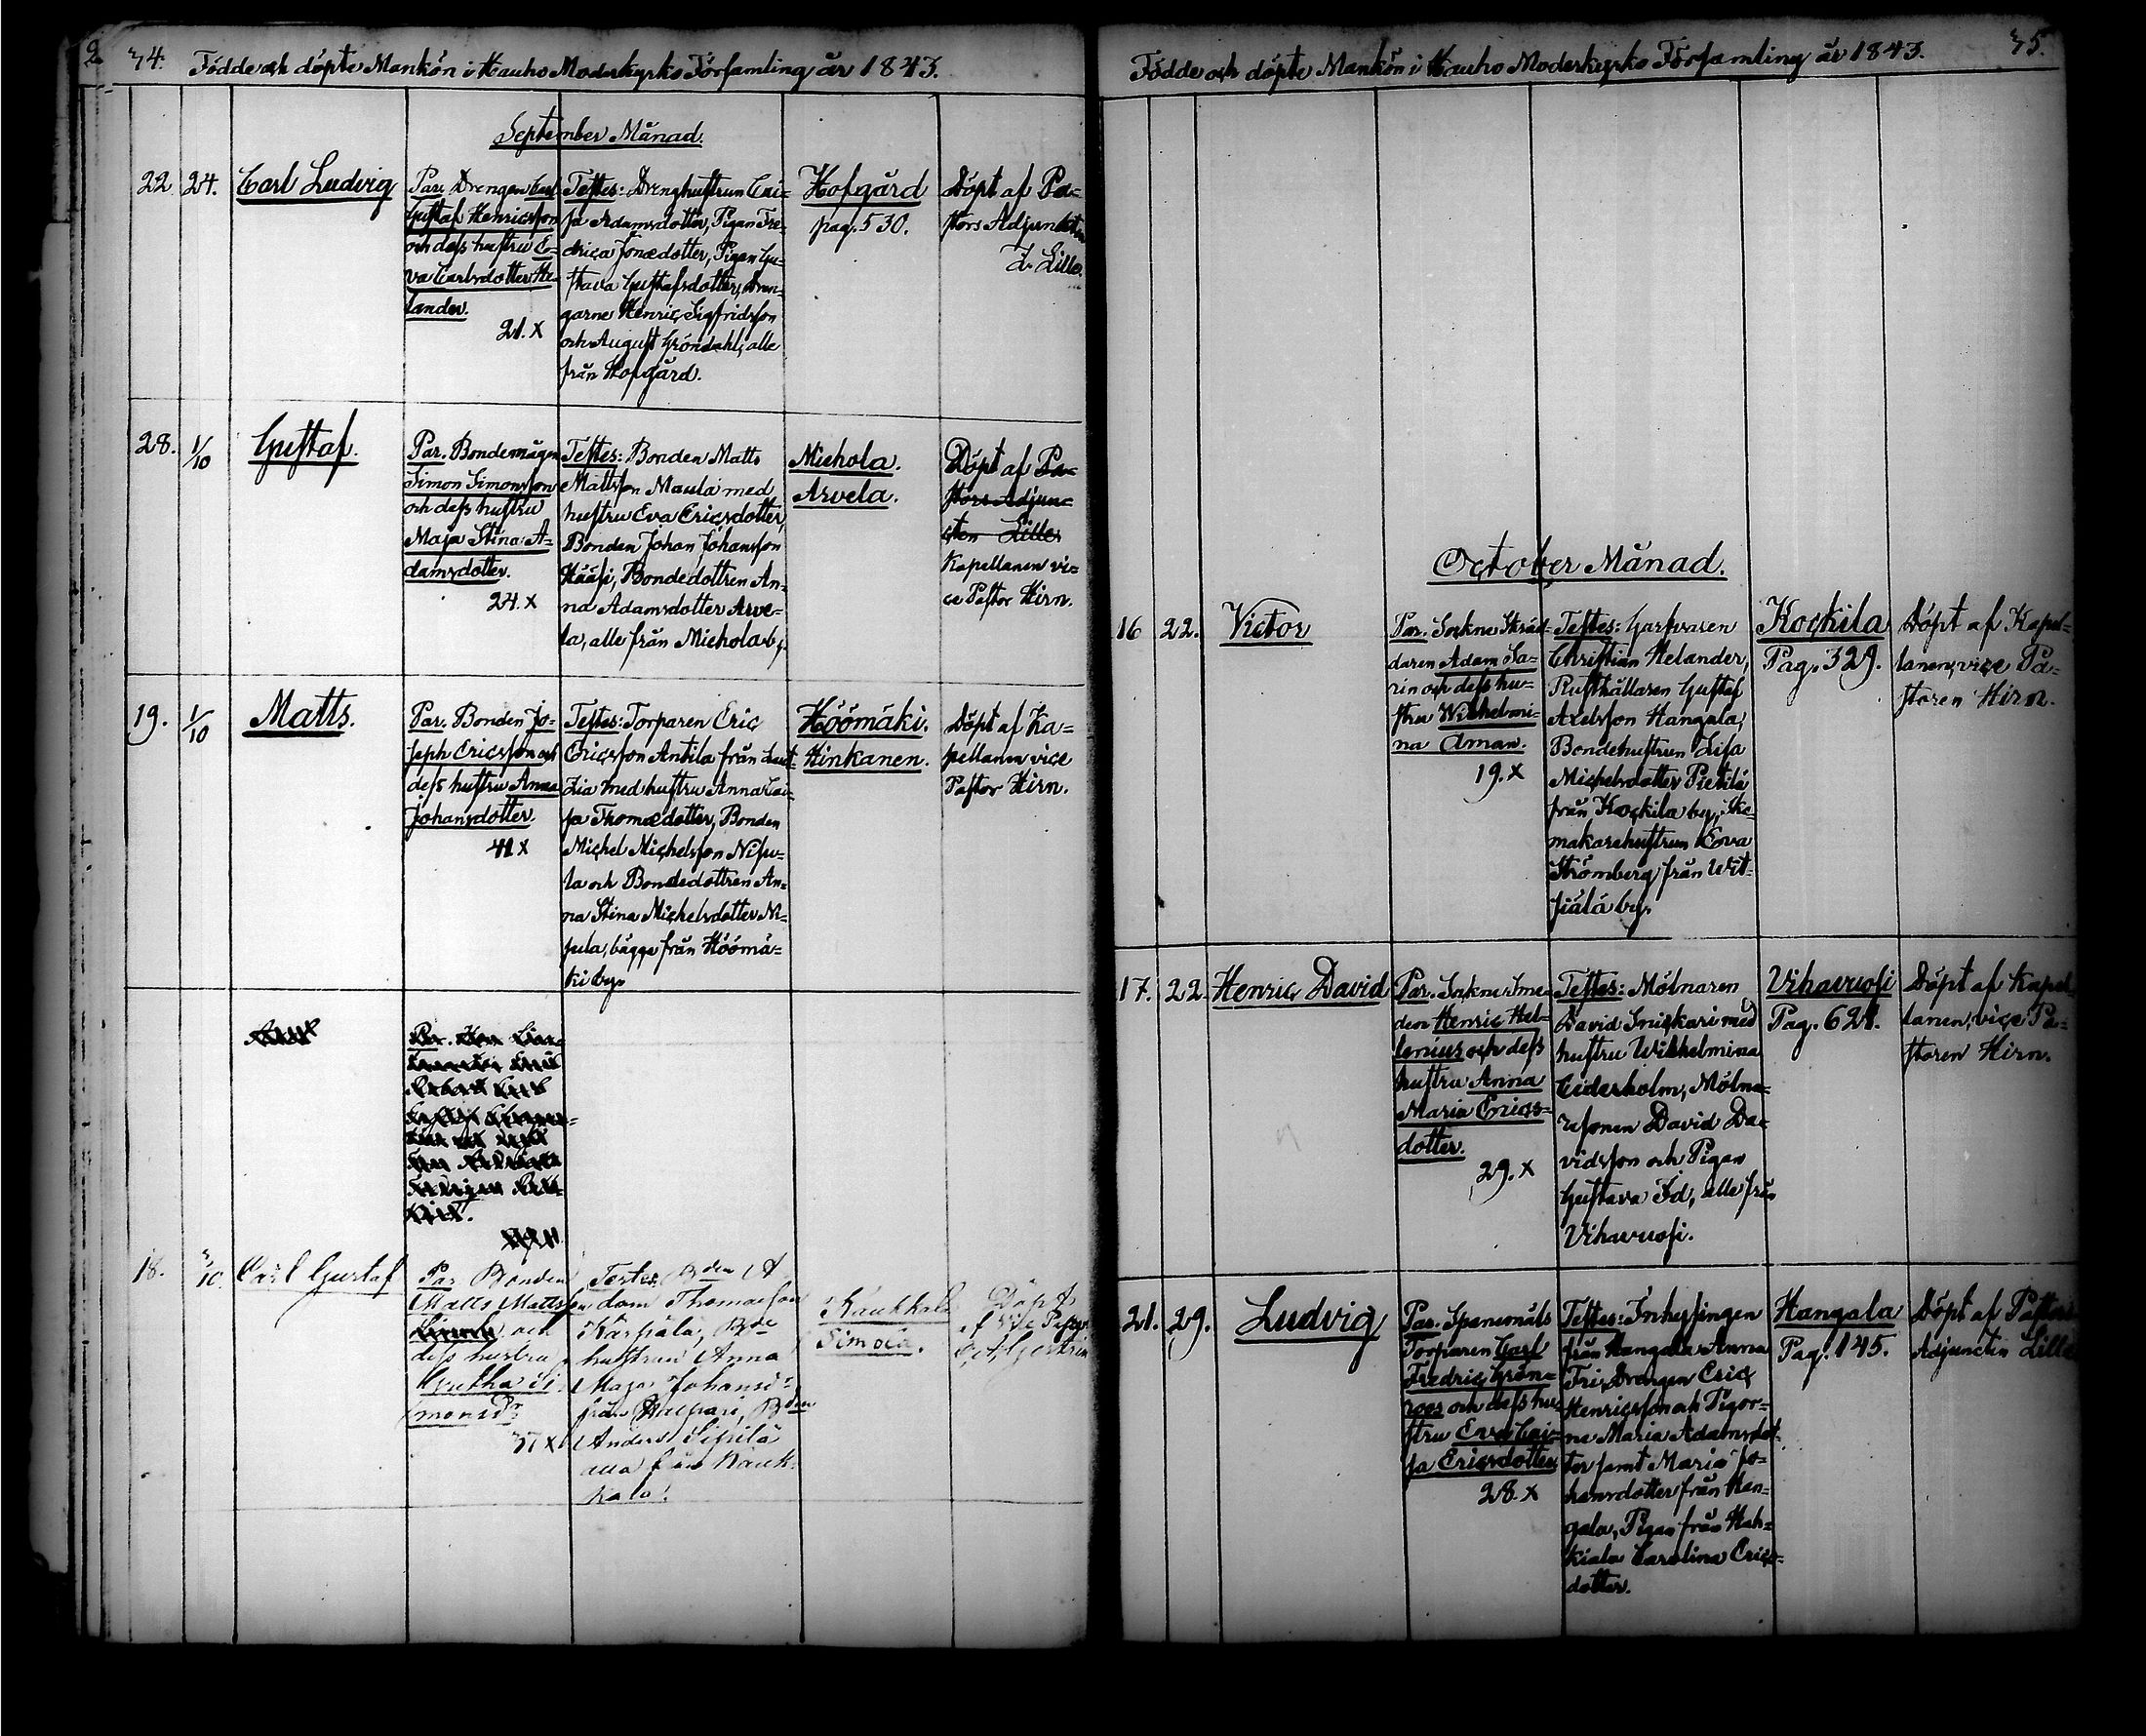 74. Födde och döpte Mankön i Hauho Moderkyrko Församling år 1843.
September Månad.
22. 24. Carl Ludvig
Par. Drengen Carl
Gustaf Henricsson
och dess hustru E-
va Carlsdotter He-
lander.
21. x
Testes: Drenghustrun Cai-
sa Adamsdotter, Pigan Fre-
drica Jonædotter, Pigan Gu-
stava Gustafsdotter, Dren-
garne Henric Sigfridsson
och August Gröndahl, alle
från Hofgård.
Hofgård
pag. 530.
Döpt af Pa-
stors Adjunkten
Lille.
28. 1/10 Gustaf.
Par. Bondemågen
Simon Simonsson
och dess hustru
Maja Stina A-
damsdotter.
24. x
Testes: Bonden Matts
Mattsson Maula med
hustru Eva Ericsdotter,
Bonden Johan Johansson
Hääsi, Bondedottren An-
na Adamsdotter Arve-
la, alle från Miehola by.
Miehola.
Arvela.
Döpt af Pa-
stors Adjun-
cten Lille
Kapellanen vi-
ce Pastor Hirn.
19. 1/10 Matts.
Par. Bonden Jo-
seph Ericsson och
dess hustru Anna
Johansdotter
41 x
Testes: Torparen Eric
Ericsson Antila från Laut-
zia med hustru Anna Cai-
sa Thomædotter, Bonden
Michel Michelsson Nisu-
la och Bondedottren An-
na Stina Michelsdotter Ni-
sula, bägge från Höömä-
ki by.
Höömäki.
Hinkanen.
Döpt af Ka-
pellanen vice
Pastor Hirn.
Par.
18. 3/10. Carl Gustaf
Par Bonden
Matts Mattsson
och
dess hustru
Si-
monsdr
37 x
Testes Bden A
dam Thomasson
Karpala, Bde
hustrun Anna
Maja Johansdr
från, Bden
Anders Sipilä
alla från Kauk-
kala.
Kaukkala
Simola.
Döpt
af Vice Pastor
75.
Födde och döpte Mankön i Hauho Moderkyrko Församling år 1843.
October Månad.
16 22. Victor
Par. Sockne Skräd-
daren Adam Sa-
rin och dess hu-
stru Wilhelmi-
na Aman.
19. x
Testes: Garfvaren
Christian Helander,
Rusthållaren Gustaf
Axelsson Hangala,
Bondehustrun Lisa
Michelsdotter Pietilä
från Kockila by, Sko-
makarehustrun Eva
Strömberg från Wit-
siälä by.
Kockila
Pag. 329.
Döpt af Kapel-
lanen, vice Pa-
storen Hirn.
17. 22. Henric David
Par. Sockne Sme-
den Henric Hel-
lenius och dess
hustru Anna
Maria Erics-
dotter.
29. x
Testes: Mölnaren
David Snickari med
hustru Wilhelmina
Cederholm, Mölna-
resonen David Da-
vidsson och Pigan
Gustava Id, alle från
Vihavuosi.
Vihavuosi
Pag. 621.
Döpt af Kapel-
lanen, vice Pa-
storen Hirn.
21. 29. Ludvig
Par. Spanmåls
Torparen Carl
Fredric Grön-
roos och dess hu-
stru Eva Cai-
sa Ericsdotter
28. x
Testes: Inhysingen
från Hangala Anna
Fri, Drengen Eric
Henricsson och Pigor-
na Maria Adamsdot-
ter samt Maria Jo-
hansdotter från Han-
gala, Pigan från Hah-
kiala Carolina Erics-
dotter.
Hangala
Pag. 145.
Döpt af Pastors
Adjuncten Lille